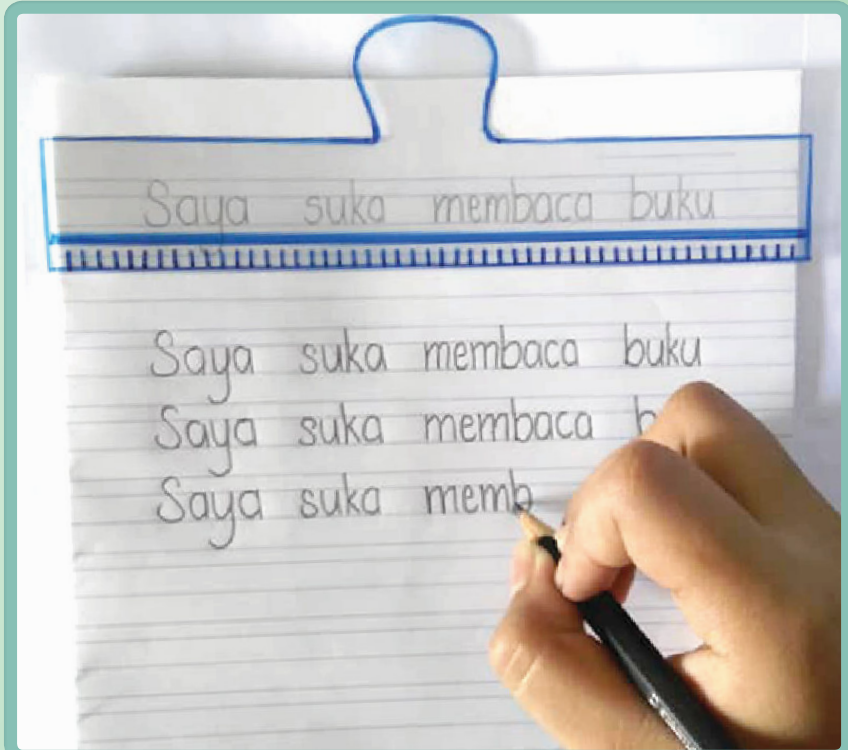 Saya suka membaca buku
Saya suka membaca buku
Saya suka membaca b
Saya suka memb